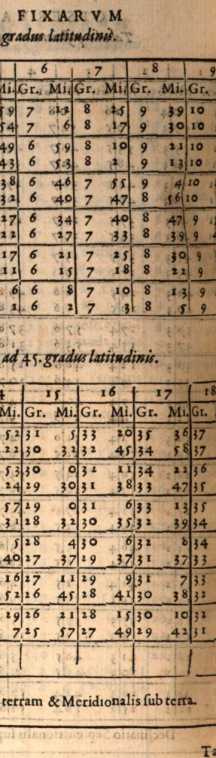 FIXARVM
gradus latitudinis.
6 7 8 9
Mi. Gr. Mi. Gr. Mi. Gr. Mi. Gr.
59 7 12 8 25 9 39 10
54 7 6 8 17 9 30 10
49 6 59 8 10 9 21 10
43 6 53 8 2 9 13 10
38 6 46 7 55 9 4 10
32 6 40 7 47 8 56 10
27 6 34 7 40 8 47 9
22 6 27 7 33 8 39 9
17 6 21 7 25 8 30 9
11 6 15 7 18 8 22 9
6 6 8 7 10 8 13 9
1 6 2 7 3 8 5 9
ad 45. gradus latitudinis.
4 15 16 17 18
Mi. Gr. Mi. Gr. Mi. Gr. Mi. Gr.
52 31 5 33 20 35 36 37
22 30 32 32 45 34 58 37
53 30 0 32 11 34 22 36
24 29 30 31 38 33 47 35
57 29 0 31 6 33 13 35
31 28 32 30 35 32 39 34
5 28 4 30 6 32 8 34
40 27 37 29 37 31 37 33
16 27 11 29 9 31 7 33
52 26 45 28 41 30 38 32
29 26 21 28 15 30 10 32
7 25 57 27 49 29 42 31
terram & Meridionalis sub terra.
Ta